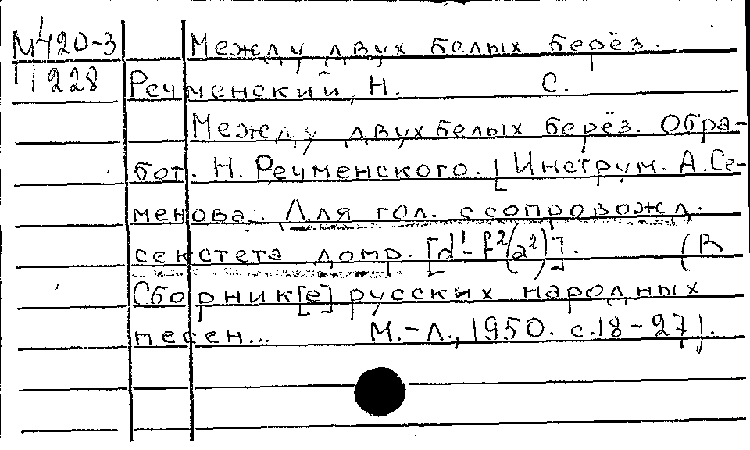 М420-3 Между двух белых берёз.
11228 Речменский, Н. С.
Между двух белых берёз. Обра-
бот. Н. Речменского. [Инструм. А. Се-
менова. Для гол. с сопровожд.
секстета домр. [d¹-f²(a²)]. (В
Сборник[е] русских народных
песен... М.-Л., 1950. с. 18-27).